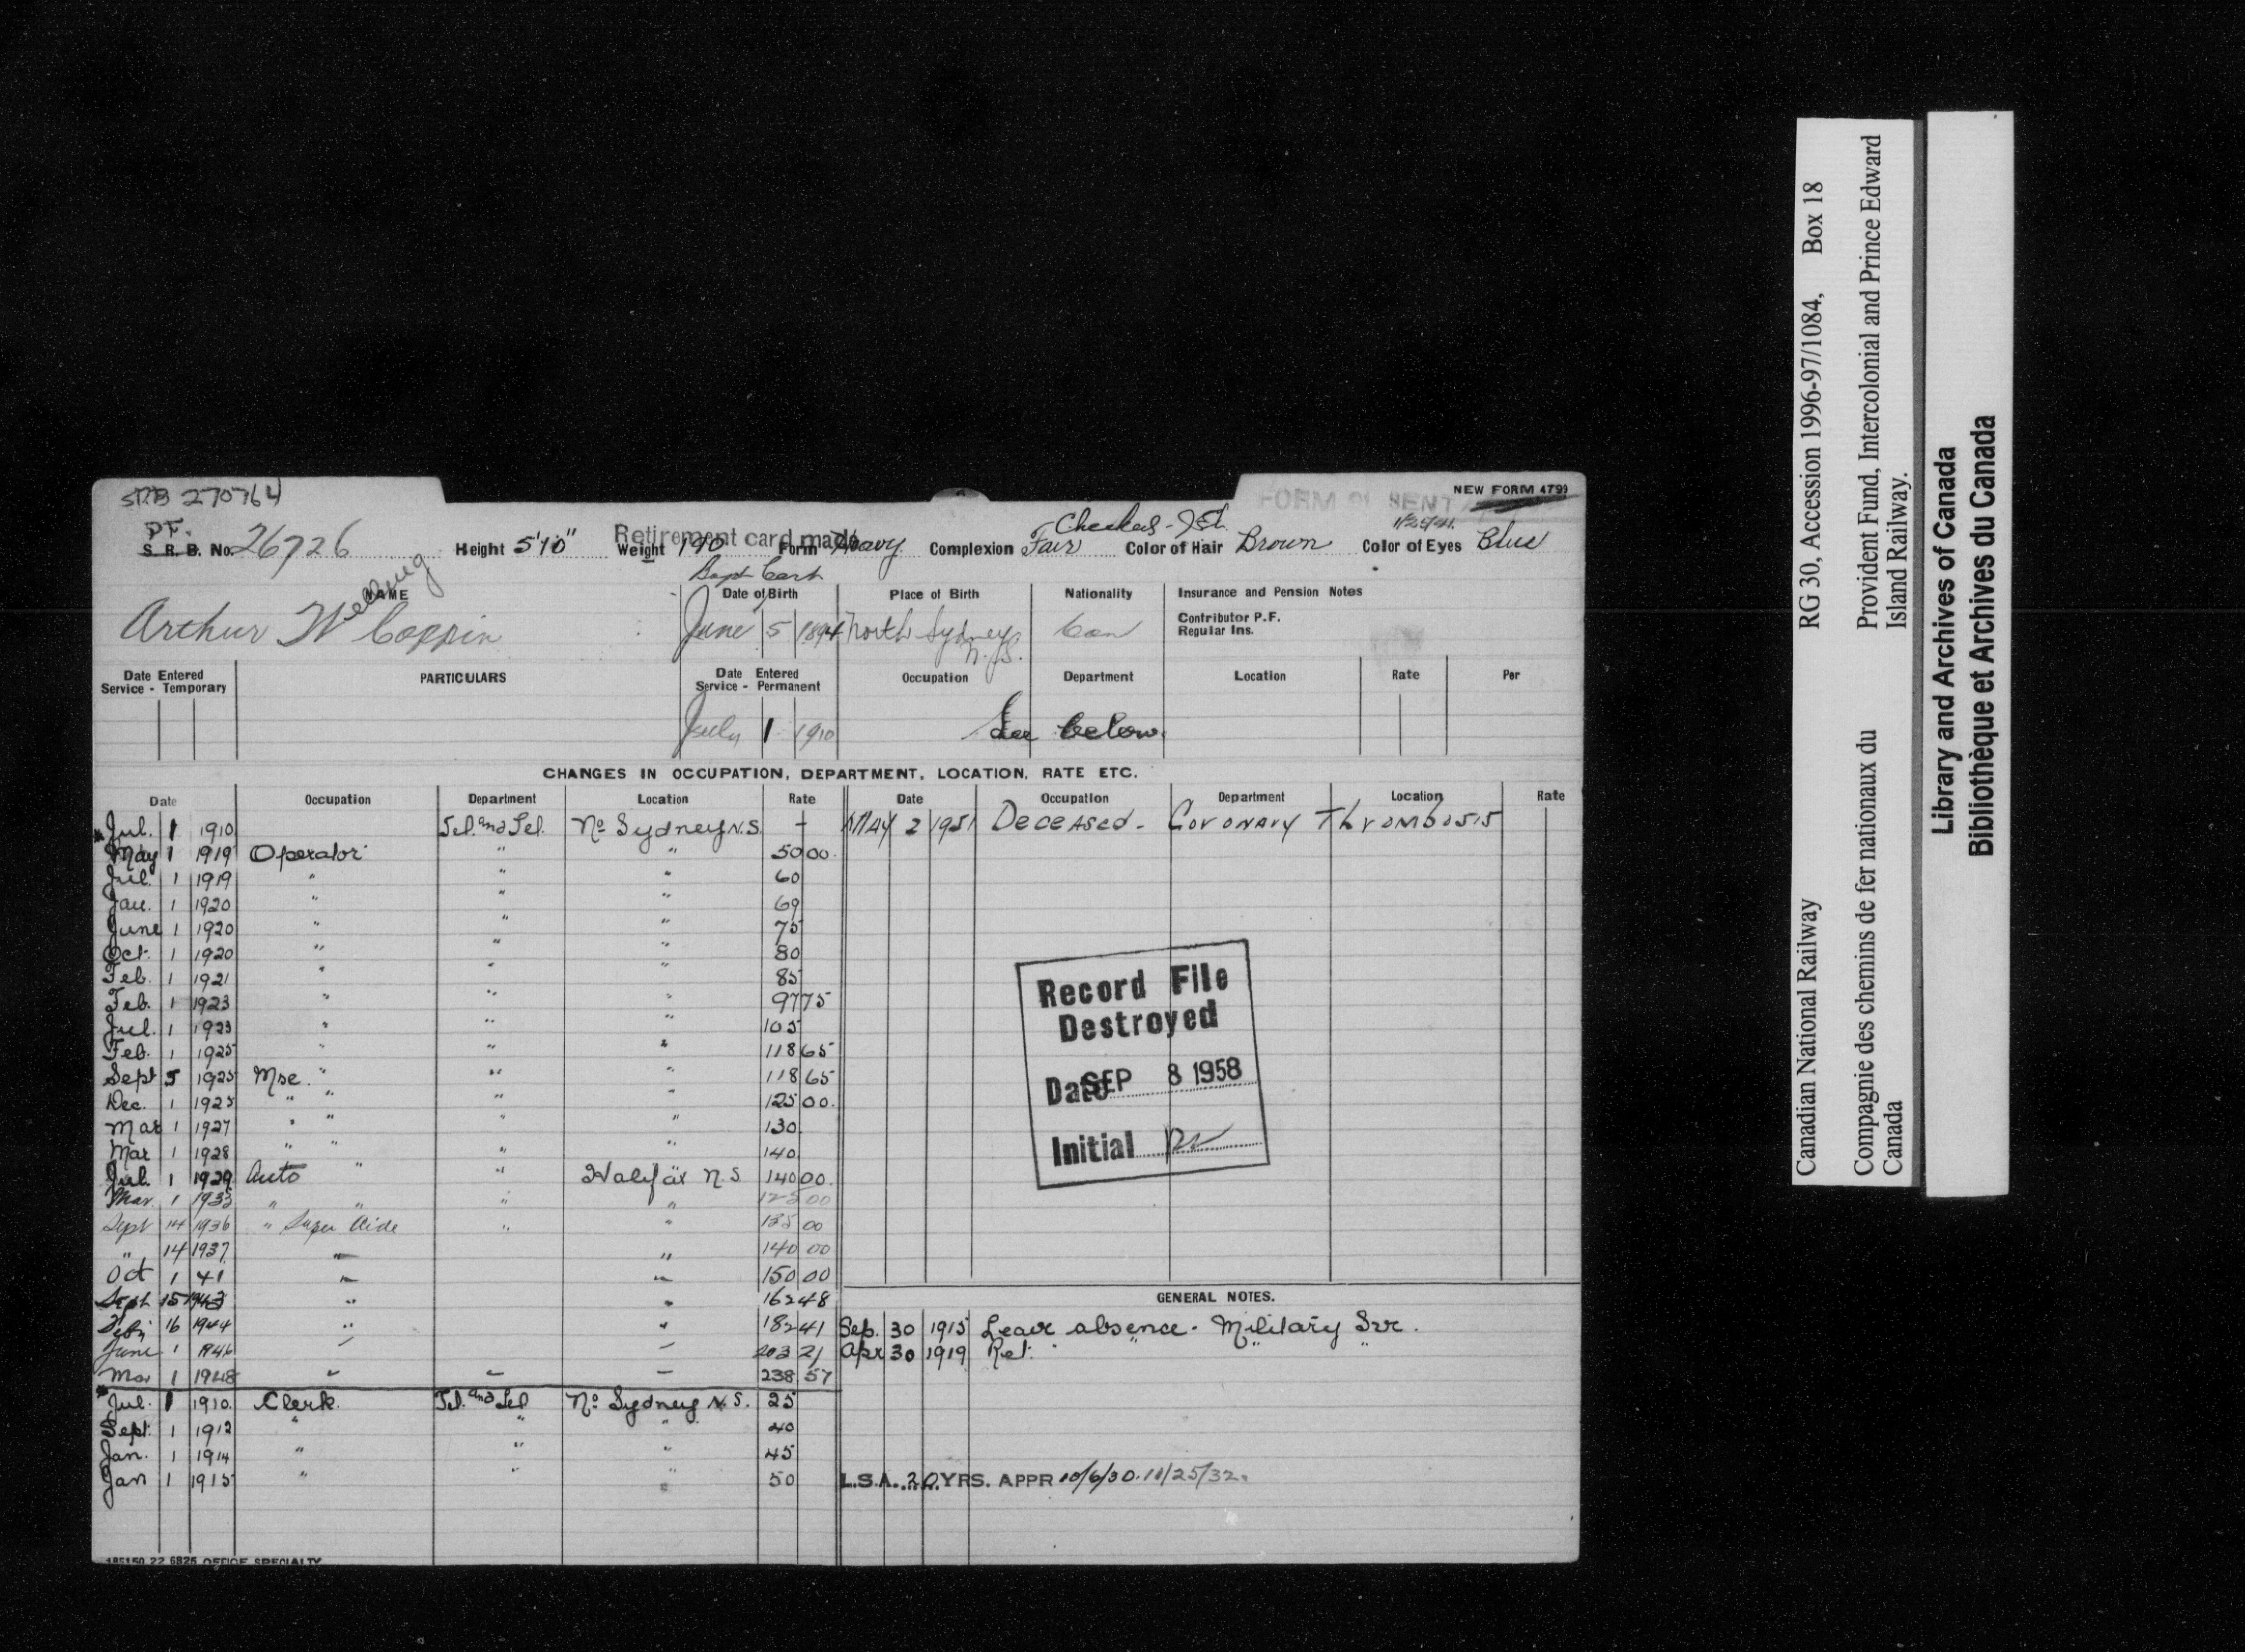 SRB 270764
NEW FORM 4799
FORM 91 SENT
P.F.
S. R. B. No. 26726 Height 5'10" Weight 190 Form Heavy Complexion Fair Color of Hair Brown Color of Eyes Blue
Retirement card made
Checked
Bapt. Cert.
NAME
Arthur W Coppin
Date of Birth
June 5 1894
Place of Birth
North Sydney N.S.
Nationality
Can
Insurance and Pension Notes
Contributor P.F.
Regular Ins.
Date Entered Service - Temporary
PARTICULARS
Date Entered Service - Permanent
July 1 1910
Occupation Department Location Rate Per
See below
CHANGES IN OCCUPATION, DEPARTMENT, LOCATION, RATE ETC.
Date Occupation Department Location Rate
*Jul. 1 1910 Tel. and Tel. No Sydney N.S. +
May 1 1919 Operator " " 50 00
Jul. 1 1919 " " " 60
Jan. 1 1920 " " " 69
June 1 1920 " " " 75
Oct. 1 1920 " " " 80
Feb. 1 1921 " " " 85
Feb. 1 1923 " " " 97 75
Jul. 1 1923 " " " 105
Feb. 1 1925 " " " 118 65
Sept 5 1925 Mse. " " " 118 65
Dec. 1 1925 " " " " 125 00
Mar 1 1927 " " " " 130
Mar 1 1928 " " " " 140
Jul. 1 1929 Auto " " Halifax N.S. 140 00
Mar. 1 1933 " " " "
Sept 14 1936 " Super Aide " " 135 00
" 14 1937 " " 140 00
Oct 1 41 " " 150 00
Sept 15 1943 " " 162 48
16 1944 " " 182 41
June 1 1946 " " 203 21
Mar 1 1948 " " " 238 57
*Jul. 1 1910 Clerk. Tel. and Tel No Sydney N.S. 25
Sept. 1 1912 " " " 40
Jan. 1 1914 " " " 45
Jan 1 1915 " " " 50
185150 22 6825 OFFICE SPECIALTY
Date Occupation Department Location Rate
MAY 2 1951 DECEASED - CORONARY THROMBOSIS
Record File
Destroyed
Date SEP 8 1958
Initial
GENERAL NOTES.
Sep. 30 1915 Leave absence. Military Svr.
Apr 30 1919 Ret. " " "
L.S.A. 20 YRS. APPR 10/6/30. 11/25/32.
Canadian National Railway RG 30, Accession 1996-97/1084, Box 18
Compagnie des chemins de fer nationaux du Canada
Provident Fund, Intercolonial and Prince Edward Island Railway.
Library and Archives of Canada
Bibliothèque et Archives du Canada